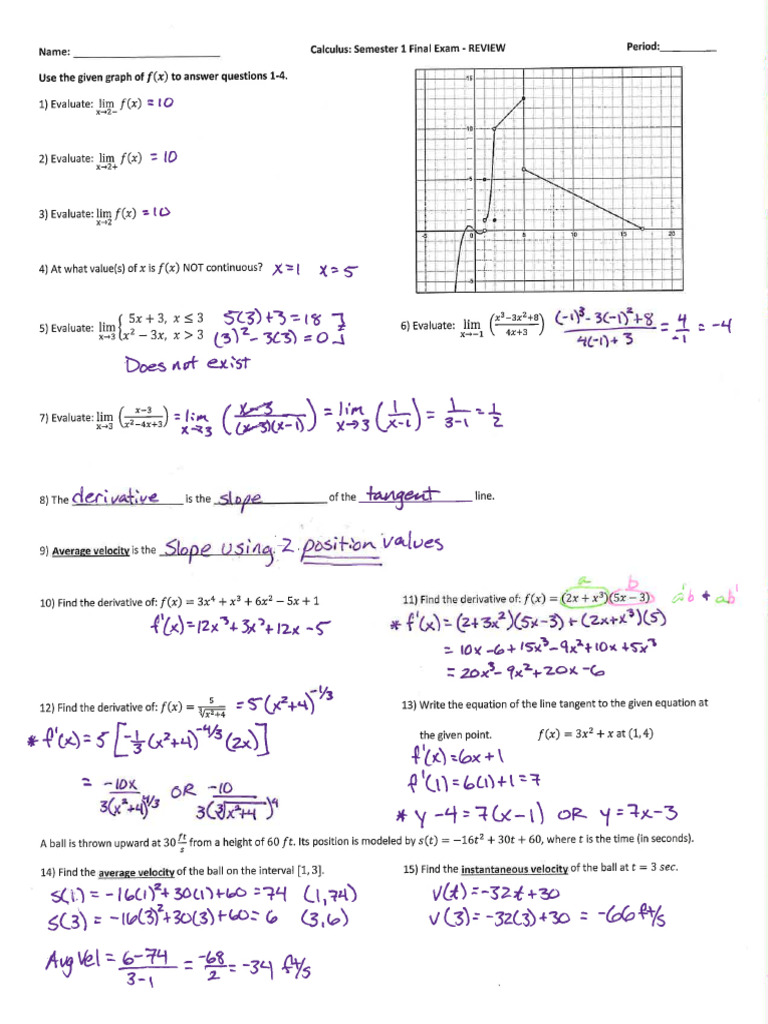 Name: ____________ Calculus: Semester 1 Final Exam - REVIEW Period:________
Use the given graph of f(x) to answer questions 1-4.
1) Evaluate: lim x→2− f(x) = 10
2) Evaluate: lim x→2+ f(x) = 10
3) Evaluate: lim x→2 f(x) = 10
15
10
5
-5 0 5 10 15 20
-5
4) At what value(s) of x is f(x) NOT continuous? x=1 x=5
5) Evaluate: lim x→3 { 5x + 3, x ≤ 3 5(3)+3=18
x² − 3x, x > 3 (3)² - 3(3) = 0
Does not exist
6) Evaluate: lim x→−1 ((x³−3x²+8)/(4x+3)) ((-1)³-3(-1)²+8)/(4(-1)+3) = 4/-1 = -4
7) Evaluate: lim x→3 ((x−3)/(x²−4x+3)) = lim x→3 ((x-3)/((x-3)(x-1))) = lim x→3 (1/(x-1)) = 1/(3-1) = 1/2
8) The derivative is the slope of the tangent line.
9) Average velocity is the Slope using 2 position values
10) Find the derivative of: f(x) = 3x⁴ + x³ + 6x² − 5x + 1
f'(x) = 12x³ + 3x² + 12x - 5
a b
11) Find the derivative of: f(x) = (2x + x³)(5x − 3) a'b + ab'
* f'(x) = (2+3x²)(5x-3) + (2x+x³)(5)
= 10x - 6 + 15x³ - 9x² + 10x + 5x³
= 20x³ - 9x² + 20x - 6
12) Find the derivative of: f(x) = 5/∛(x²+4) = 5(x²+4)^(-1/3)
* f'(x) = 5[-1/3 (x²+4)^(-4/3) (2x)]
= -10x/(3(x²+4)^(4/3)) OR -10/(3(∛(x²+4))⁴)
13) Write the equation of the line tangent to the given equation at
the given point. f(x) = 3x² + x at (1, 4)
f'(x) = 6x + 1
f'(1) = 6(1) + 1 = 7
* y - 4 = 7(x - 1) OR y = 7x - 3
A ball is thrown upward at 30 ft/s from a height of 60 ft. Its position is modeled by s(t) = −16t² + 30t + 60, where t is the time (in seconds).
14) Find the average velocity of the ball on the interval [1, 3].
s(1) = -16(1)² + 30(1) + 60 = 74 (1,74)
s(3) = -16(3)² + 30(3) + 60 = 6 (3,6)
Avg Vel = (6-74)/(3-1) = -68/2 = -34 ft/s
15) Find the instantaneous velocity of the ball at t = 3 sec.
v(t) = -32t + 30
v(3) = -32(3) + 30 = -66 ft/s